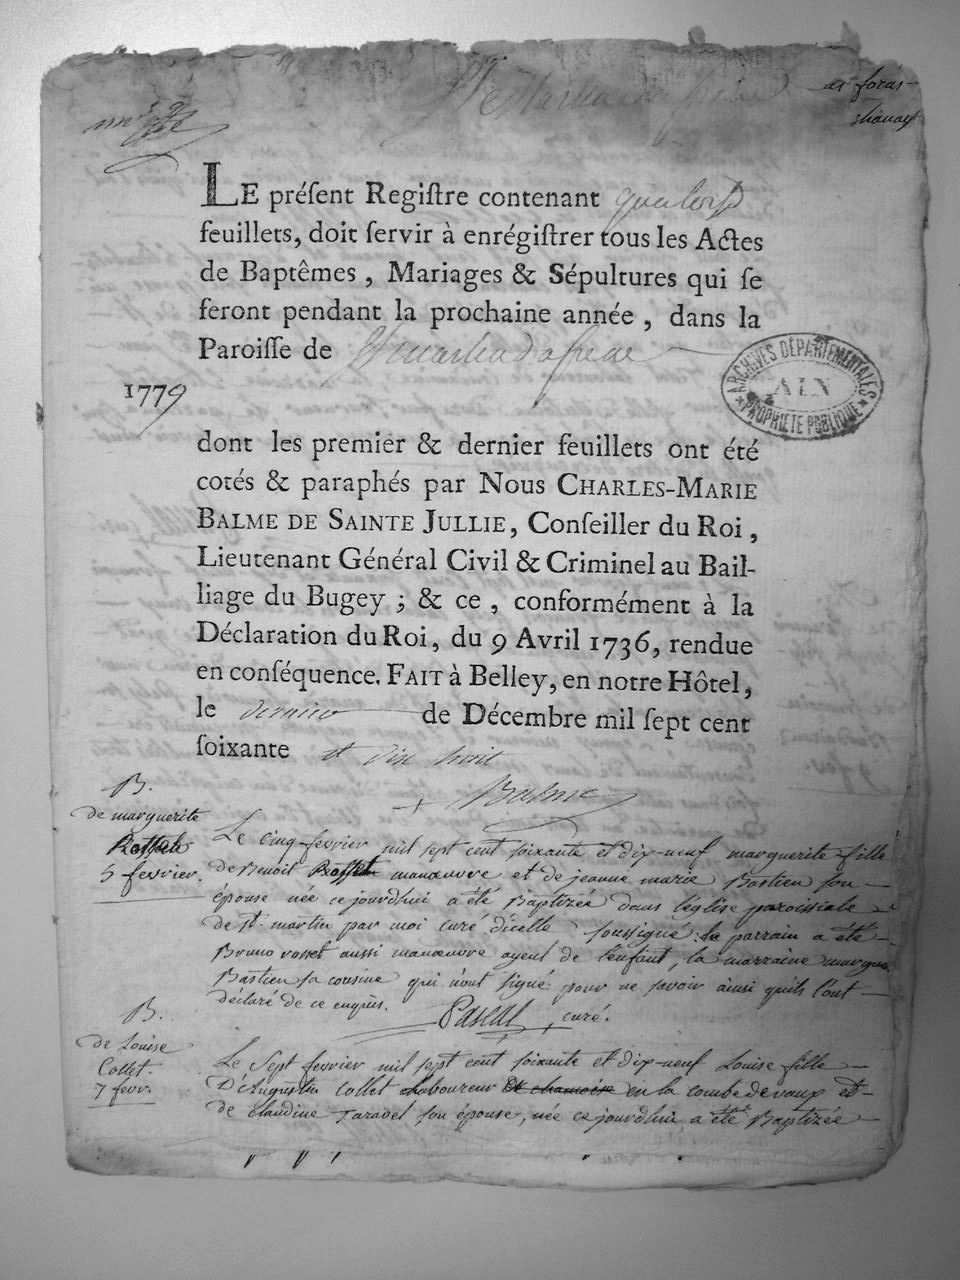 St Martin
et foras-
LE préſent Regiſtre contenant quatorze
feuillets, doit ſervir à enrégiſtrer tous les Actes
de Baptêmes, Mariages & Sépultures qui ſe
feront pendant la prochaine année, dans la
Paroiſſe de St martin
1779
ARCHIVES DÉPARTEMENTALES
AIN
PROPRIÉTÉ PUBLIQUE
dont les premier & dernier feuillets ont été
cotés & paraphés par Nous CHARLES-MARIE
BALME DE SAINTE JULLIE, Conſeiller du Roi,
Lieutenant Général Civil & Criminel au Bail-
liage du Bugey; & ce, conformément à la
Déclaration du Roi, du 9 Avril 1736, rendue
en conſéquence. FAIT à Belley, en notre Hôtel,
le dernier de Décembre mil ſept cent
ſoixante et dix huit
Balme
B.
de marguerite
5 fevrier.
Le cinq fevrier mil sept cent soixante et dix-neuf marguerite fille
de Benoit manœuvre et de jeanne marie Bastien son
épouse née ce jourdhui a été Baptizée dans l'église paroissiale
de St. martin par moi curé d'icelle soussigné: le parrain a été
Bruno rosset aussi manœuvre ayeul de l'enfant, la marraine margue.
Bastien sa cousine qui n'ont signé pour ne savoir ainsi qu'ils l'ont
déclaré de ce enquis.
Pascal curé.
B.
de Louise
Collet.
7 fevr.
Le Sept fevrier mil sept cent soixante et dix-neuf Louise fille
D'Augustin Collet Laboureur en la combe de vaux et
de claudine Taravel son épouse, née ce jourdhui a été Baptizée